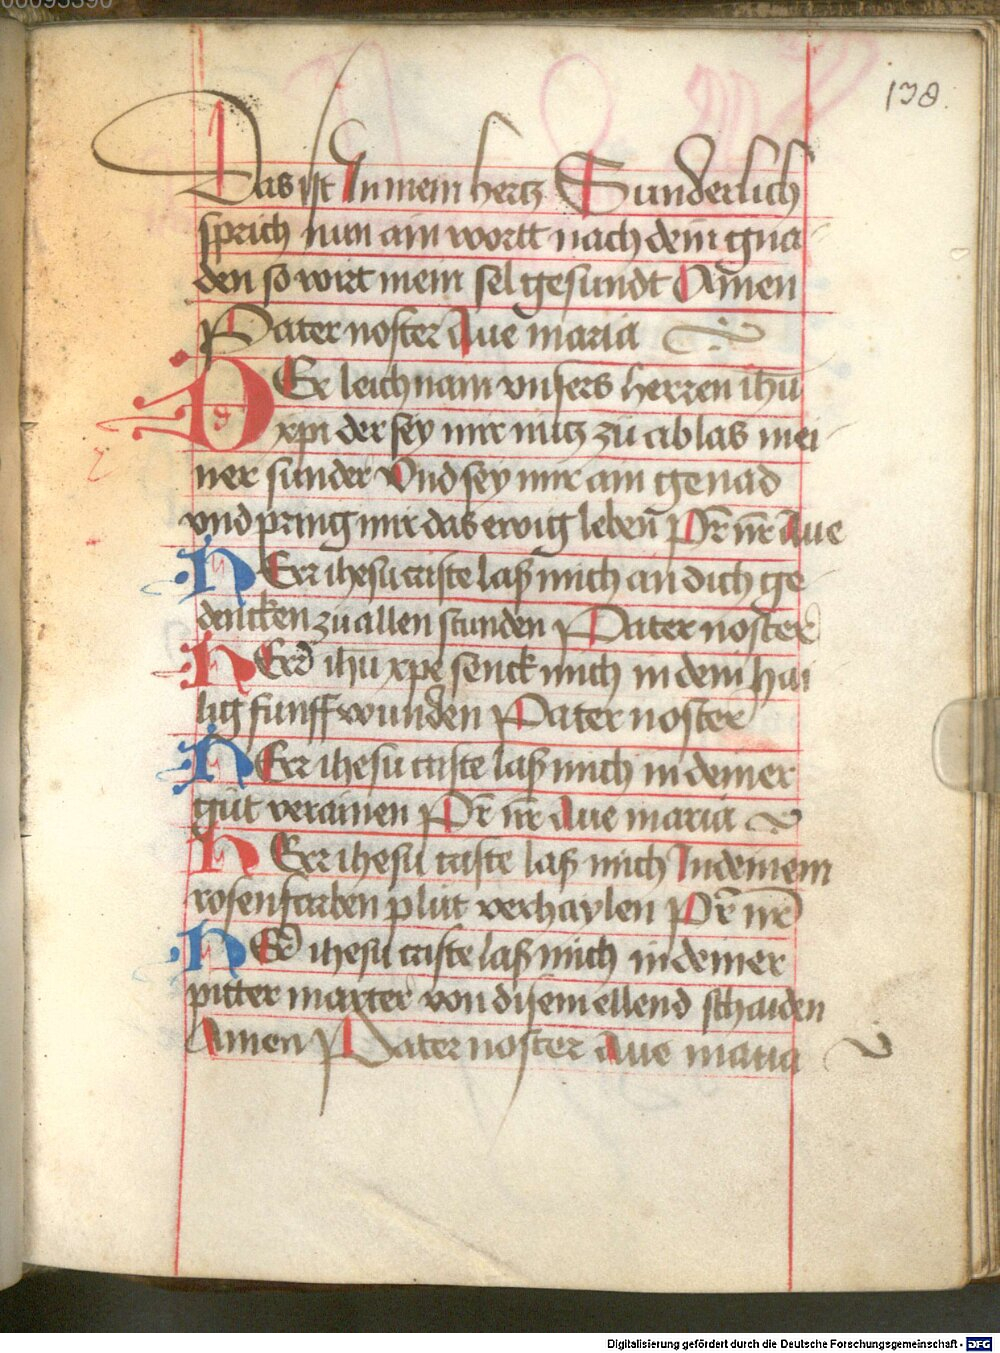 138
Das ist In mein hertz Sunderlich
sprich nun ain wortt nach dein gna
den so wirt mein sel gesundt Amen
Pater noster Aue maria
DEr leichnam vnsers herren ihū
xpi der sey mir nütz zü ablas mei
ner sunder Vnd sey mir ain genad
vnd pring mir das ewig leben Pr̄ nr̄ Aue
HErr ihesu criste laß mich an dich ge
dencken zü allen stunden Pater noster
HErr ihū xpe senck mich in dein hai
lig funff wunden Pater noster
HErr ihesu criste laß mich in deiner
güt verainen Pr̄ nr̄ Aue maria
HErr ihesu criste laß mich In deinem
rosenfarben plüt verhaylen Pr̄ nr̄
HEr ihesu criste laß mich in deiner
pitter marter von disem ellend schaiden
Amen Pater noster Aue maria
Digitalisierung gefördert durch die Deutsche Forschungsgemeinschaft - DFG